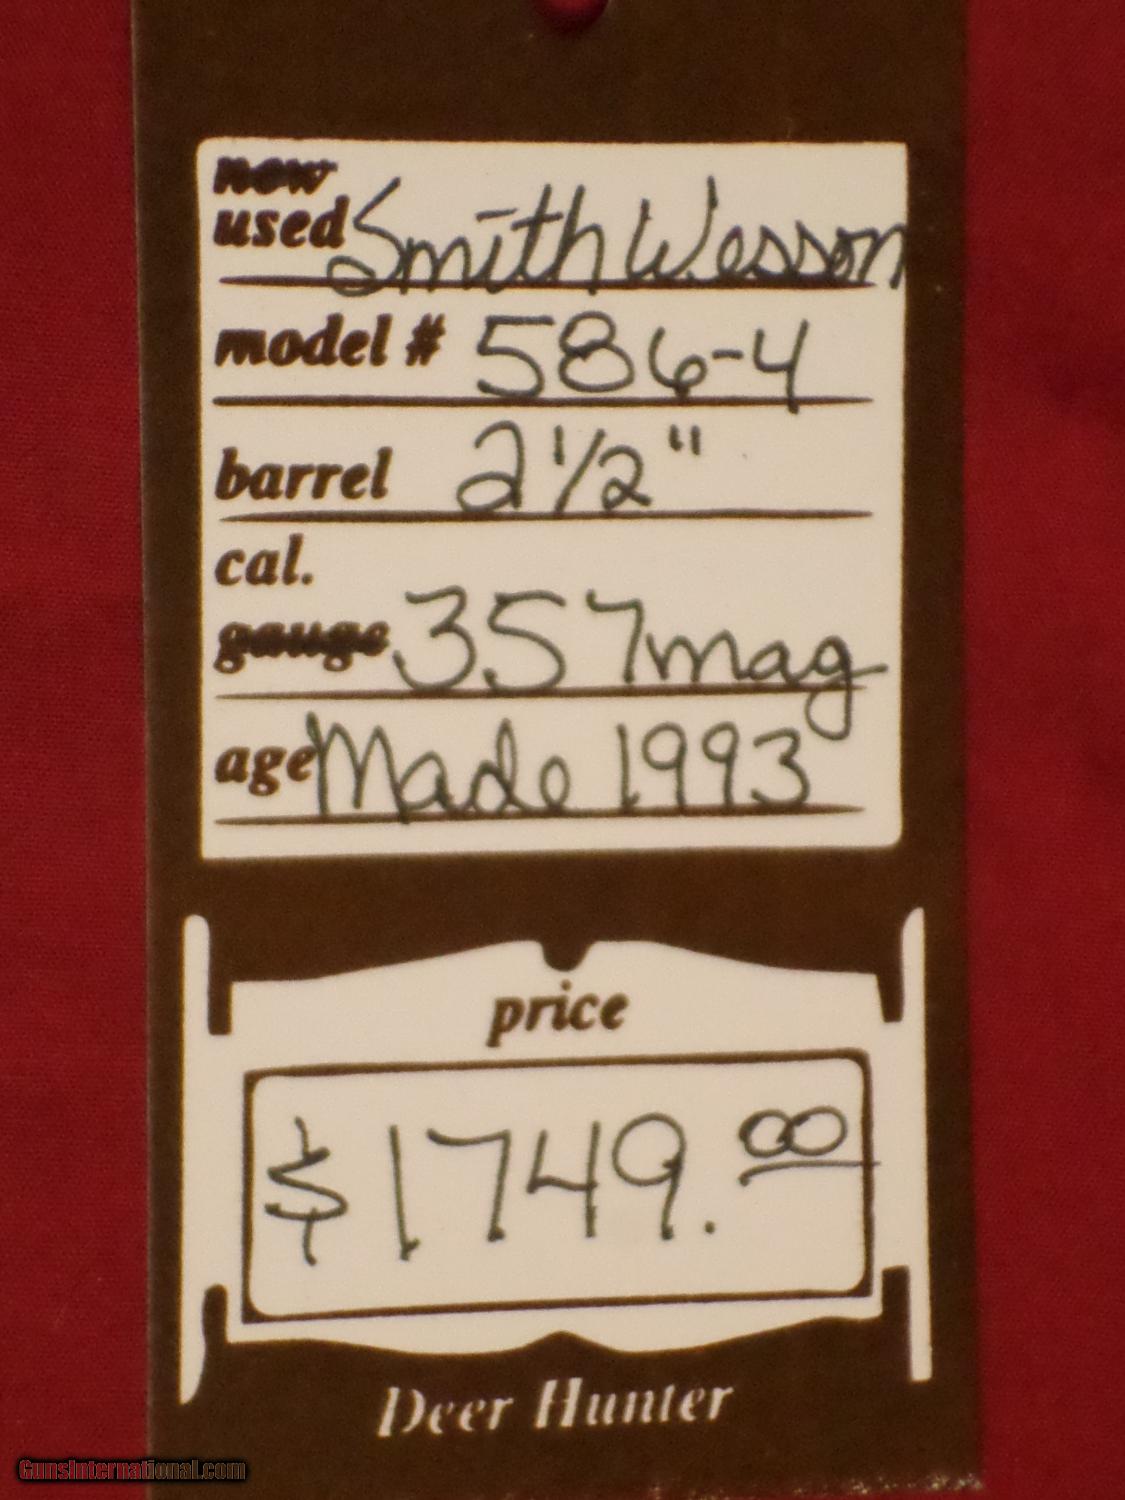 new
used Smith Wesson
model # 586-4
barrel 2 1/2"
cal.
gauge .357 mag
age Made 1993
price
$1749.00
Deer Hunter
GunsInternational.com